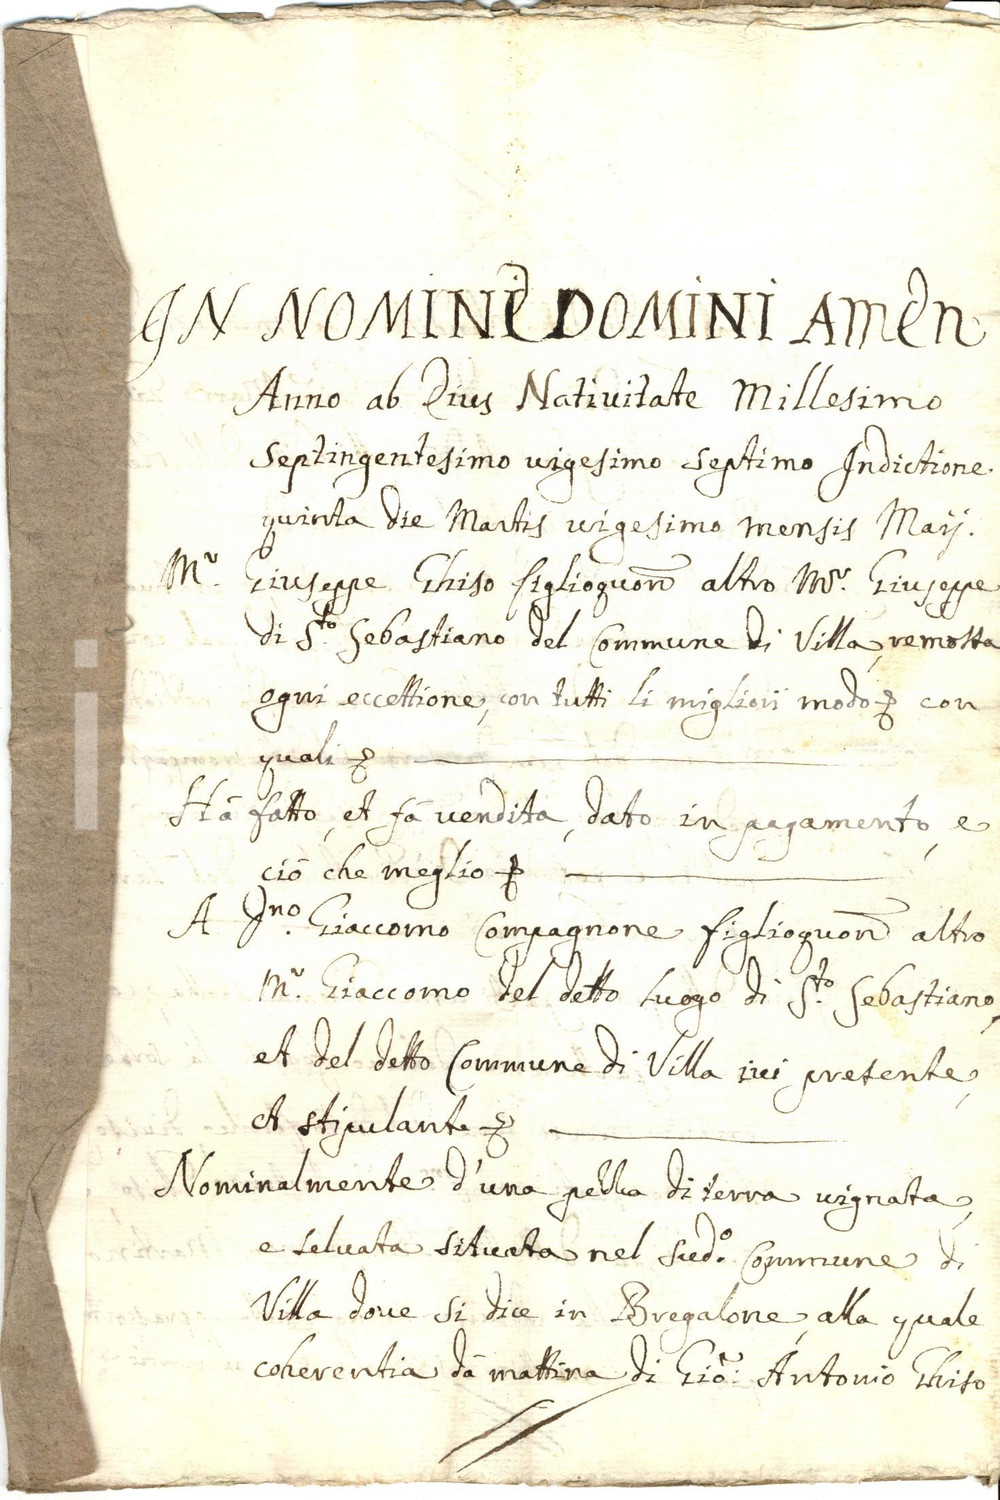 IN NOMINE DOMINI AMEN
Anno ab Eius Nativitate Millesimo
Septingentesimo vigesimo septimo Indictione
quinta die Martis vigesimo mensis Maij.
Mr. Giuseppe Ghiso figlioquon altro Mr. Giuseppe
di Sto. Sebastiano del Commune di Villa, remossa
ogni eccettione, con tutti li migliori modo con
quali
Hà fatto, et fà vendita, dato in pagamento, e
ciò che meglio
A Jno. Giaccomo Compagnone figlioquon altro
Mr. Giaccomo del detto luogo di Sto. Sebastiano,
et del detto Commune di Villa ivi presente,
et stipulante
Nominalmente d'una pezza di terra vignata,
e selvata situata nel sudo. Commune di
Villa dove si dice in Bregalone, alla quale
coherentia dà mattina di Gio: Antonio Ghiso